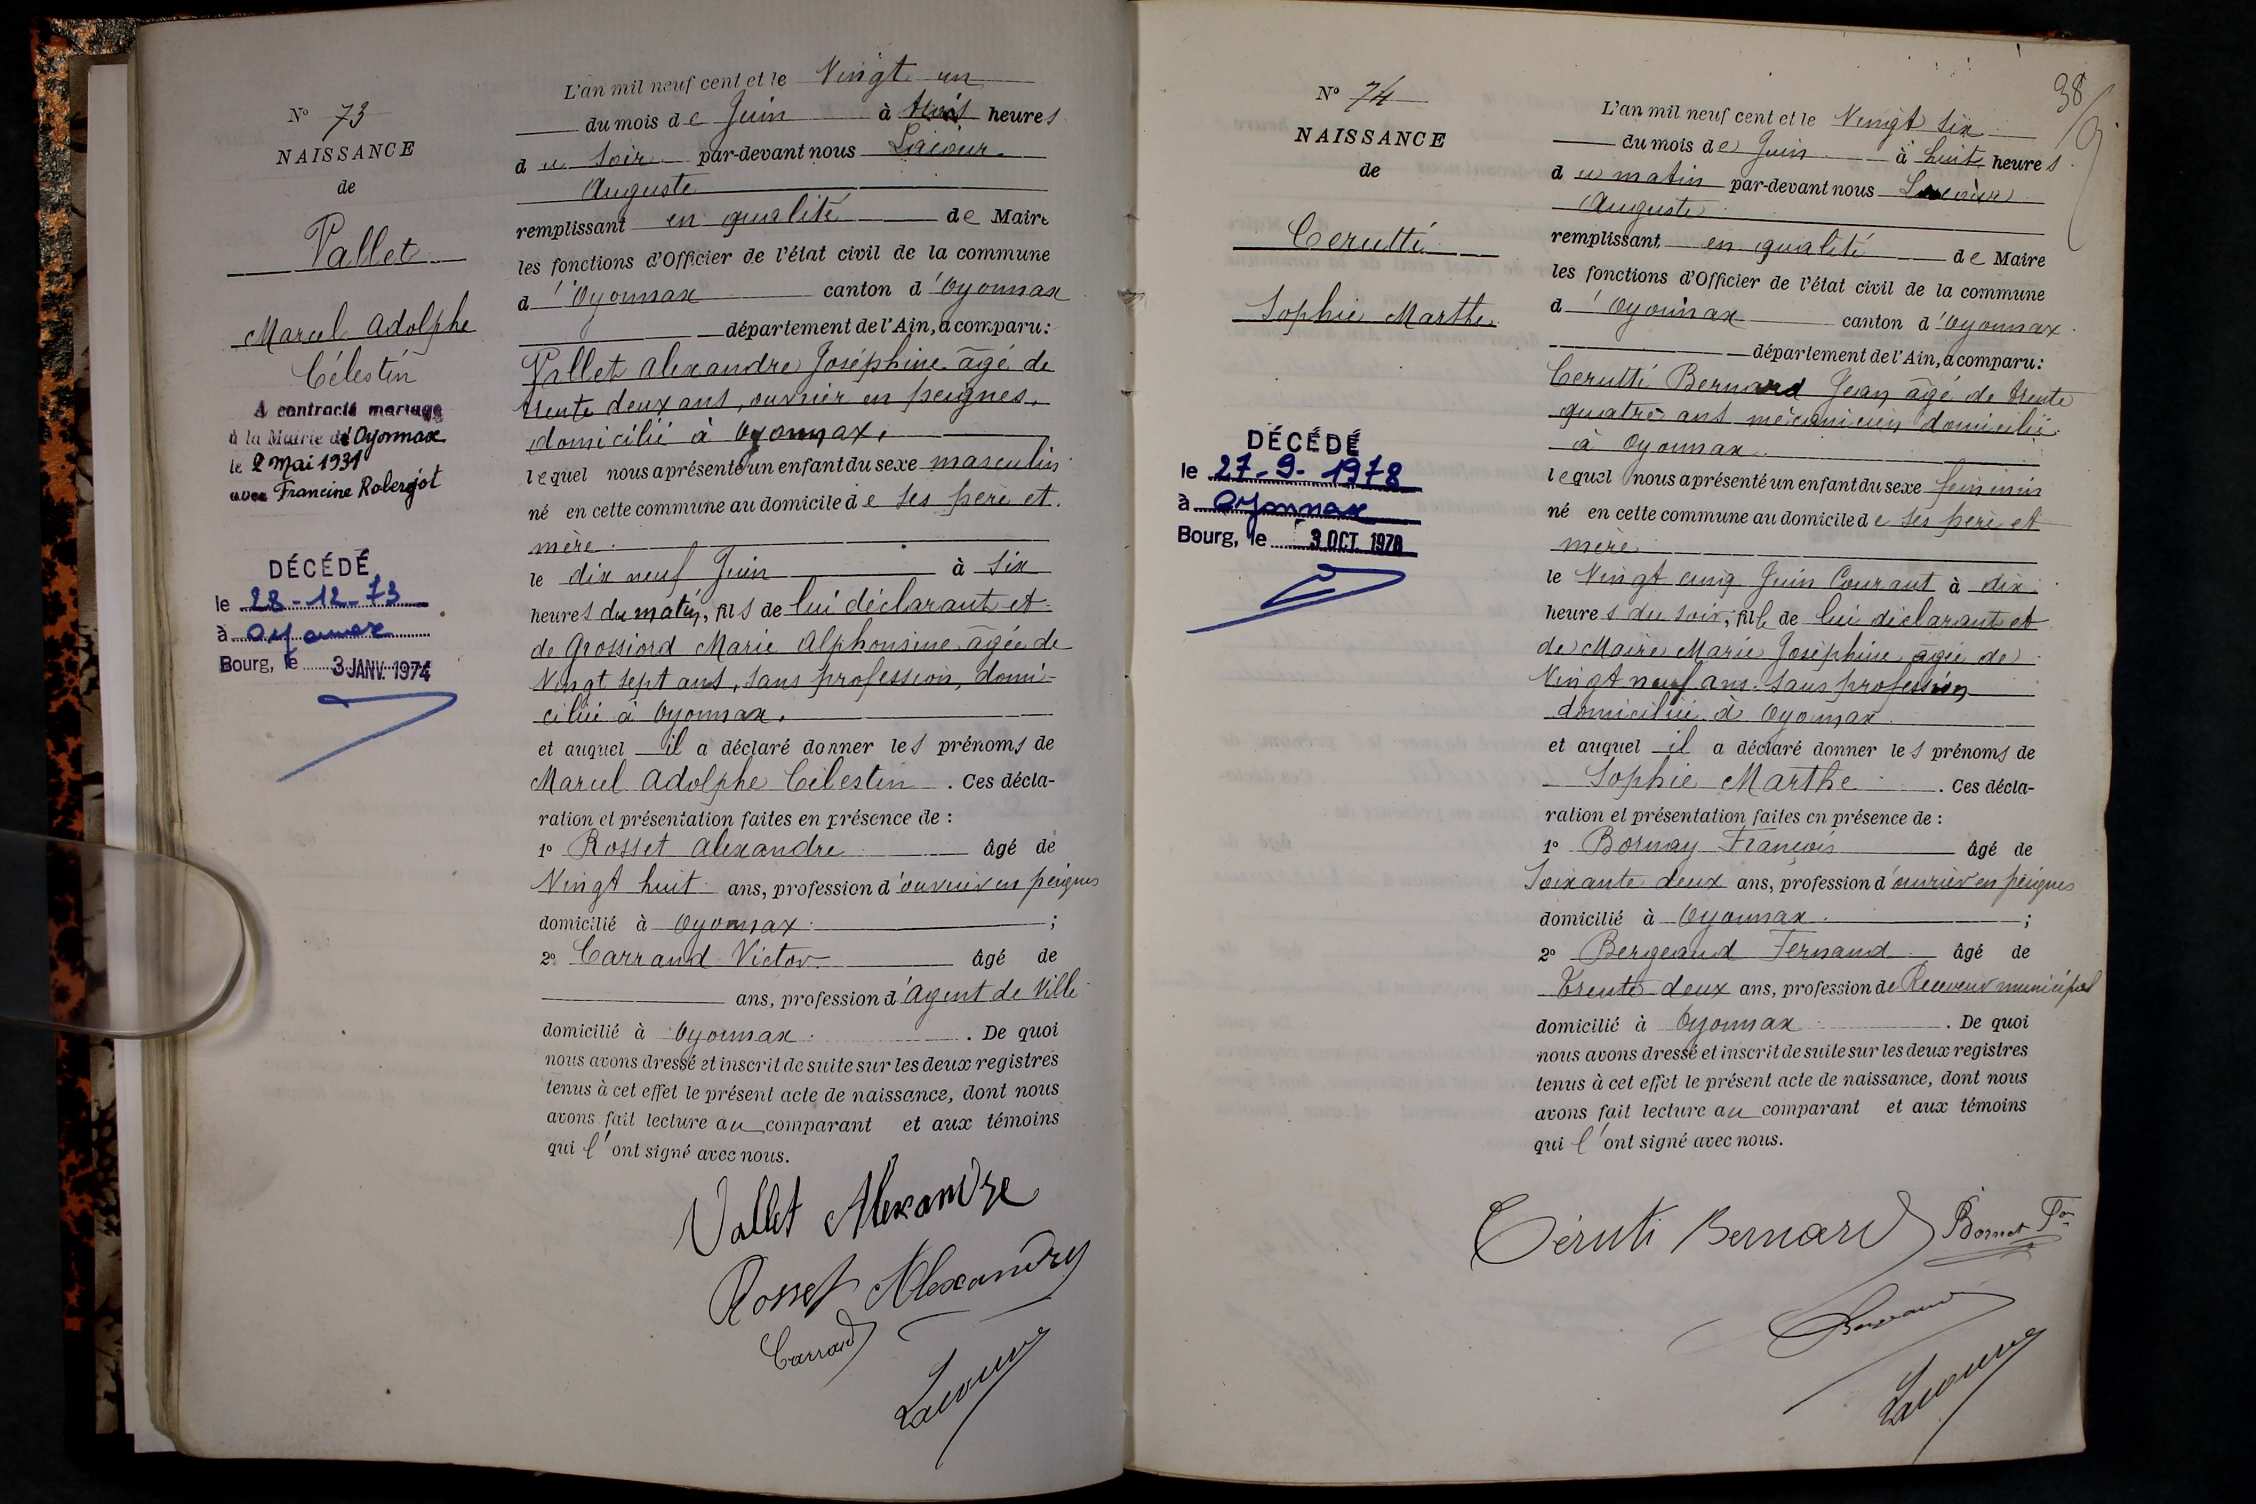 N° 73
NAISSANCE
de
Vallet
Marcel Adolphe
Célestin
A contracté mariage
à la Mairie d'Oyonnax
le 2 Mai 1931
avec Francine Robergot
DÉCÉDÉ
le 28-12-73
à Oyonnax
Bourg, le 3 JANV. 1974
L'an mil neuf cent et le Vingt un
du mois de Juin à trois heures
du soir par-devant nous Lacour
Auguste
remplissant en qualité de Maire
les fonctions d'Officier de l'état civil de la commune
d'Oyonnax canton d'Oyonnax
département de l'Ain, a comparu:
Vallet Alexandre Joséphine âgé de
trente deux ans, ouvrier en peignes,
domicilié à Oyonnax,
lequel nous a présenté un enfant du sexe masculin
né en cette commune au domicile de ses père et
mère
le dix neuf Juin à six
heures du matin, fils de lui déclarant et
de Grossiord Marie Alphonsine âgée de
Vingt sept ans, sans profession, domi-
ciliée à Oyonnax.
et auquel il a déclaré donner les prénoms de
Marcel Adolphe Célestin. Ces décla-
ration et présentation faites en présence de :
1° Rosset Alexandre âgé de
Vingt huit ans, profession d'ouvrier en peignes
domicilié à Oyonnax ;
2° Carrand Victor âgé de
ans, profession d'Agent de Ville
domicilié à Oyonnax. De quoi
nous avons dressé et inscrit de suite sur les deux registres
tenus à cet effet le présent acte de naissance, dont nous
avons fait lecture au comparant et aux témoins
qui l'ont signé avec nous.
Vallet Alexandre
Rosset Alexandre
Carrand
Lacour
38
N° 74
NAISSANCE
de
Cerutti
Sophie Marthe
DÉCÉDÉ
le 27-9-1978
à Oyonnax
Bourg, le 3 OCT. 1978
L'an mil neuf cent et le Vingt six
du mois de Juin à huit heures
du matin par-devant nous Lacour
Auguste
remplissant en qualité de Maire
les fonctions d'Officier de l'état civil de la commune
d'Oyonnax canton d'Oyonnax
département de l'Ain, a comparu:
Cerutti Bernard Jean âgé de trente
quatre ans mécanicien domicilié
à Oyonnax
lequel nous a présenté un enfant du sexe féminin
né en cette commune au domicile de ses père et
mère
le Vingt cinq Juin Courant à dix
heures du soir, fille de lui déclarant et
de Maire Marie Joséphine agée de
Vingt neuf ans. sans profession
domiciliée à Oyonnax
et auquel il a déclaré donner les prénoms de
Sophie Marthe. Ces décla-
ration et présentation faites en présence de :
1° Bornay François âgé de
Soixante deux ans, profession d'ouvrier en peignes
domicilié à Oyonnax ;
2° Bergeaud Fernand âgé de
Trente deux ans, profession de Receveur municipal
domicilié à Oyonnax. De quoi
nous avons dressé et inscrit de suite sur les deux registres
tenus à cet effet le présent acte de naissance, dont nous
avons fait lecture au comparant et aux témoins
qui l'ont signé avec nous.
Céruti Bernard
Lacour